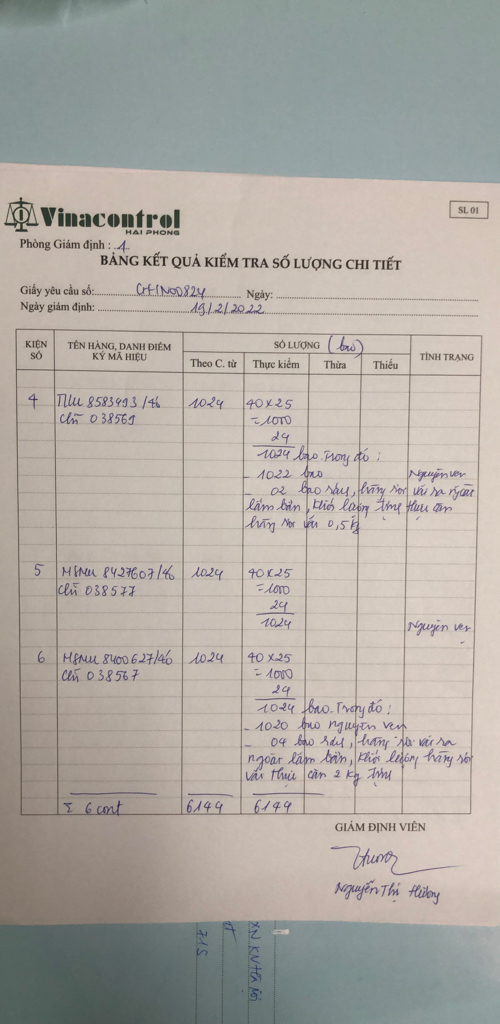 Vinacontrol
HAI PHONG
SL 01
Phòng Giám định : 1
BẢNG KẾT QUẢ KIỂM TRA SỐ LƯỢNG CHI TIẾT
Giấy yêu cầu số: Ngày:
Ngày giám định: 19/2/2022
KIỆN SỐ TÊN HÀNG, DANH ĐIỂM KÝ MÃ HIỆU SỐ LƯỢNG (bao) TÌNH TRẠNG
Theo C. từ Thực kiểm Thừa Thiếu
4 8583493/40 1024 40 x 25
chì 038569 = 1000
24
1024 bao. Trong đó :
- 1022 bao Nguyên vẹn
- 02 bao rách, hàng rơi vãi ra ngoài
lấm bẩn, khối lượng tịnh thực cân
hàng rơi vãi 0,5 kg
5 MSMU 8427607/40 1024 40 x 25
chì 038577 = 1000
24
1024 Nguyên vẹn
6 MSMU 8400627/40 1024 40 x 25
chì 038567 = 1000
24
1024 bao. Trong đó :
- 1020 bao nguyên vẹn
- 04 bao rách, hàng rơi vãi ra
ngoài lấm bẩn, khối lượng hàng rơi
vãi thực cân 2 kg tịnh
Σ 6 cont 6144 6144
GIÁM ĐỊNH VIÊN
Nguyễn Thị Hương